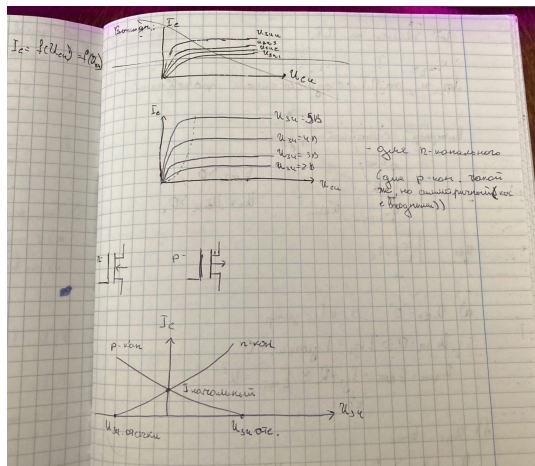 Iс = f(Uси) = f(Uзи)
Iс
Uзи4
Uзи3
Uзи2
Uзи1
Uси
Iс
Uзи=5В
Uзи=4В
Uзи=3В
Uзи=2В
Uси
- для n-канального
(для p-кан. такой
же, но симметричный
с входными))
n-
p-
Iс
p-кан
n-кан
Iначальный
Uзи
Uзи отсечки
Uзи отс.